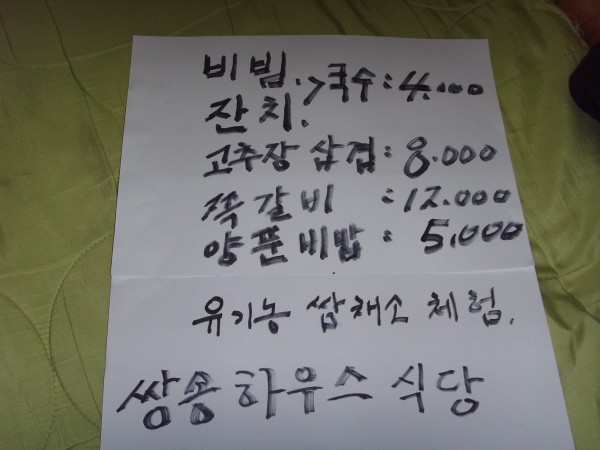 비빔. >국수 : 4.000
잔치.
고추장 삼겹 : 8.000
쪽갈비 : 12.000
양푼비밥 : 5.000
유기농 쌈채소 체험.
쌍송하우스 식당